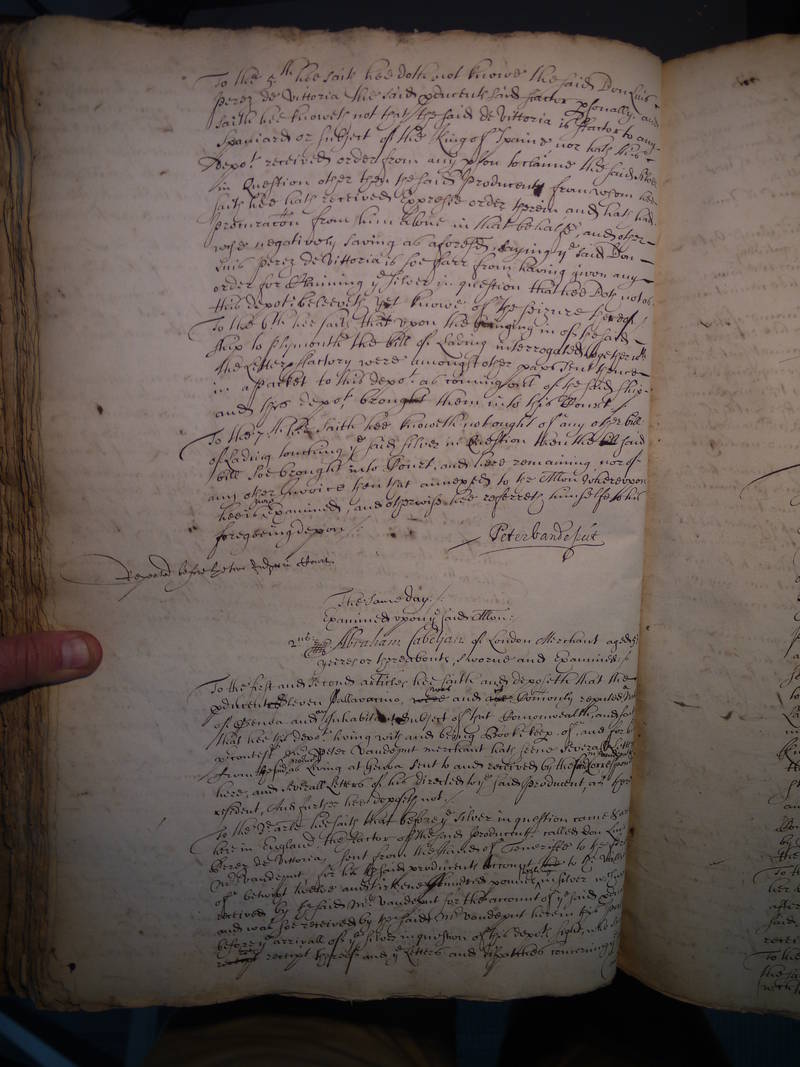 To the 5th hee saith hee doth not knowe the said Don Luis
Perez de Vittoria the said producents said factor personally and
saith hee knoweth not that the said de Vittoria is ffactor to any
Spaniard or subject of the King of Spaine nor hath this
depot received order from any pson to claime the said silver
in question other then the said Producent from whom hee
saith hee hath received expresse order therein and hath had
Procuration from him alone in that behalfe, and other-
wise negatively saving as aforesd saying ye said Don
Luis Perez de Vittoria is soe farr from having given any
order for claiming ye silver in question that hee doth not as
this depot beleeveth yet knowe of the seizure thereof
To the 6th hee saith that upon the bringing in of the said
ship to Plymouth the bill of lading interrogated together wth
the Letter ffactory were amongst other papers sent thence
in a Packet to this depot as coming out of the said ship
and this depot brought them into this Court
To the 7th hee saith hee knoweth not ought of any other bill
of Lading touching ye said silver in Question then the said
bill soe brought into Court, and here remaining, nor of
any other Invoice then that annexed to the Allon whereupon
hee is now Examined, and otherwise hee referreth himselfe to his
foregoeing depon
Peter vandeput
Repeated before
The same day
Examined upon ye said Allon:
2us
Abraham of London Merchant aged
yeares or thereabouts, sworne and Examined
To the first and second articles hee saith and deposeth that the
producent Steven Pallavacino, and Comonly reputed
of Genoa and Inhabitant subject of that Comonwealth, and saith
that hee this depot living with and being Booke keep of and for his
Peter Vandeput merchant hath seene severall Letters
from the said producent Living at Genoa sent to and received by the said Correspondent
here, and severall Letters of his directed to ye said Producent, as there
resident, And further hee deposeth not
To the 3d article hee saith that before ye silver in question came
here in England, the ffactor of the said Producent called don Luis
Perez de Vittoria, sent from the Island of Teneriffe to the
Mr Vandeput, for his the said producents account to the value
of betwixt twelve and thirteene hundred pounds in silver
received by the said Mr Vandeput for the account of ye said
and was soe received by the said Mr Vandeput here in this
before ye arrivall of ye silver in question of this depots sight, who
receipt thereof and ye Letters and dispatches concerning